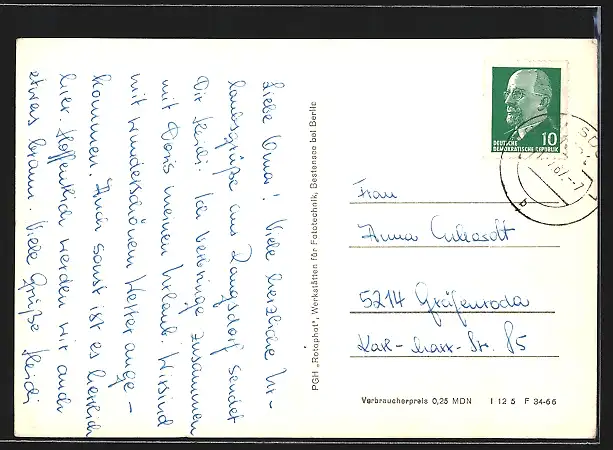 Liebe Oma! Viele herzliche Ur-
laubsgrüße aus Rangsdorf sendet
Dir Heidi. Ich verbringe zusammen
mit Doris meinen Urlaub. Wir sind
mit wunderschönem Wetter ange-
kommen. Auch sonst ist es herrlich
hier. Hoffentlich werden wir auch
etwas braun. Viele Grüße Heidi
PGH „Rotophot", Werkstätten für Fototechnik, Bestensee bei Berlin
10
DEUTSCHE
DEMOKRATISCHE REPUBLIK
Frau
Anna
5214 Gräfenroda
Karl-Marx-Str. 85
Verbraucherpreis 0,25 MDN I 12 5 F 34-66